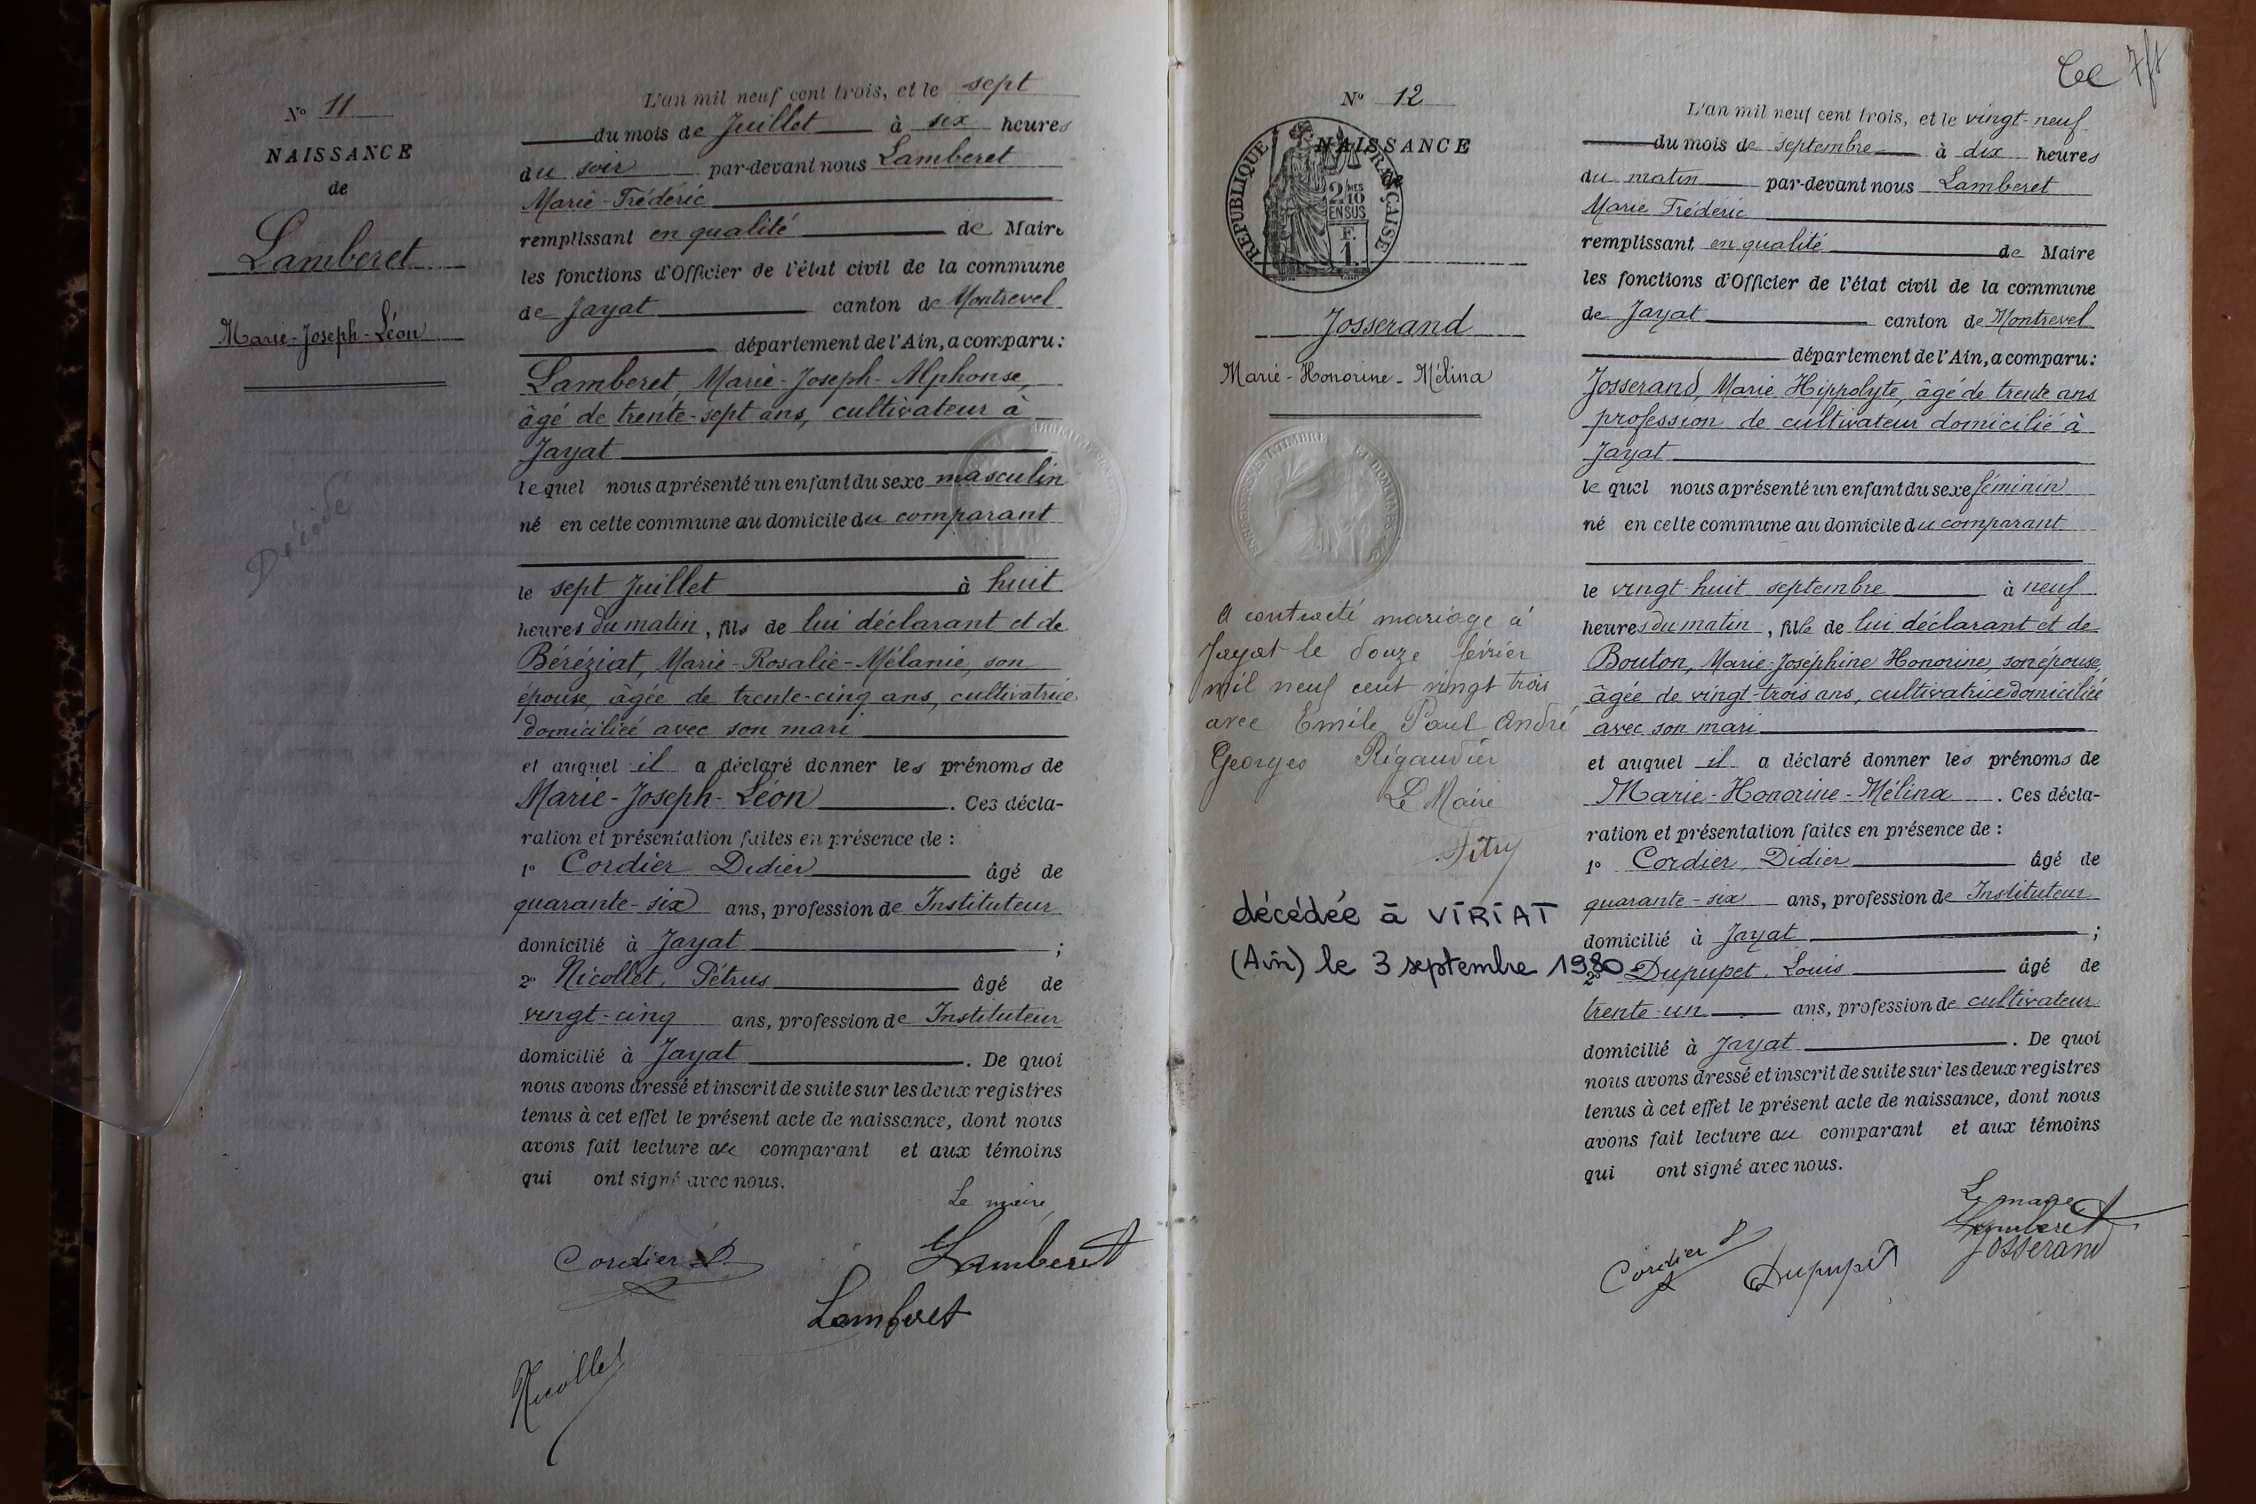 N° 11
NAISSANCE
de
Lamberet
Marie-Joseph-Léon
Décédé
L'an mil neuf cent trois, et le sept
du mois de Juillet à six heures
du soir par-devant nous Lamberet
Marie-Frédéric
remplissant en qualité de Maire
les fonctions d'Officier de l'état civil de la commune
de Jayat canton de Montrevel
département de l'Ain, a comparu:
Lamberet, Marie-Joseph-Alphonse,
âgé de trente-sept ans, cultivateur à
Jayat
lequel nous a présenté un enfant du sexe masculin
né en cette commune au domicile du comparant
le sept Juillet à huit
heures du matin, fils de lui déclarant et de
Béréziat, Marie-Rosalie-Mélanie, son
épouse, âgée de trente-cinq ans, cultivatrice
domiciliée avec son mari
et auquel il a déclaré donner les prénoms de
Marie-Joseph-Léon. Ces décla-
ration et présentation faites en présence de :
1° Cordier Didier âgé de
quarante-six ans, profession de Instituteur
domicilié à Jayat ;
2° Nicollet, Pétrus âgé de
vingt-cinq ans, profession de Instituteur
domicilié à Jayat. De quoi
nous avons dressé et inscrit de suite sur les deux registres
tenus à cet effet le présent acte de naissance, dont nous
avons fait lecture au comparant et aux témoins
qui ont signé avec nous.
Le maire,
Cordier D.
Lamberet
Lamberet
Nicollet
7ft
N° 12
NAISSANCE
de
RÉPUBLIQUE FRANÇAISE
2/10 MES
EN SUS
1 F.
Josserand
Marie-Honorine-Mélina
A contracté mariage à
Jayat le douze février
mil neuf cent vingt trois
avec Emile Paul André
Georges Rigaudier
Le Maire
décédée à VIRIAT
(Ain) le 3 septembre 1980
L'an mil neuf cent trois, et le vingt-neuf
du mois de septembre à dix heures
du matin par-devant nous Lamberet
Marie Frédéric
remplissant en qualité de Maire
les fonctions d'Officier de l'état civil de la commune
de Jayat canton de Montrevel
département de l'Ain, a comparu:
Josserand, Marie Hippolyte, âgé de trente ans
profession de cultivateur domicilié à
Jayat
lequel nous a présenté un enfant du sexe féminin
né en cette commune au domicile du comparant
le vingt-huit septembre à neuf
heures du matin, fille de lui déclarant et de
Bouton, Marie-Joséphine Honorine, son épouse,
âgée de vingt-trois ans, cultivatrice domiciliée
avec son mari
et auquel il a déclaré donner les prénoms de
Marie-Honorine-Mélina. Ces décla-
ration et présentation faites en présence de :
1° Cordier, Didier âgé de
quarante-six ans, profession de Instituteur
domicilié à Jayat ;
2° Dupupet, Louis âgé de
trente-un ans, profession de cultivateur
domicilié à Jayat. De quoi
nous avons dressé et inscrit de suite sur les deux registres
tenus à cet effet le présent acte de naissance, dont nous
avons fait lecture au comparant et aux témoins
qui ont signé avec nous.
Le maire
Lamberet
Josserand
Cordier D
Dupupet